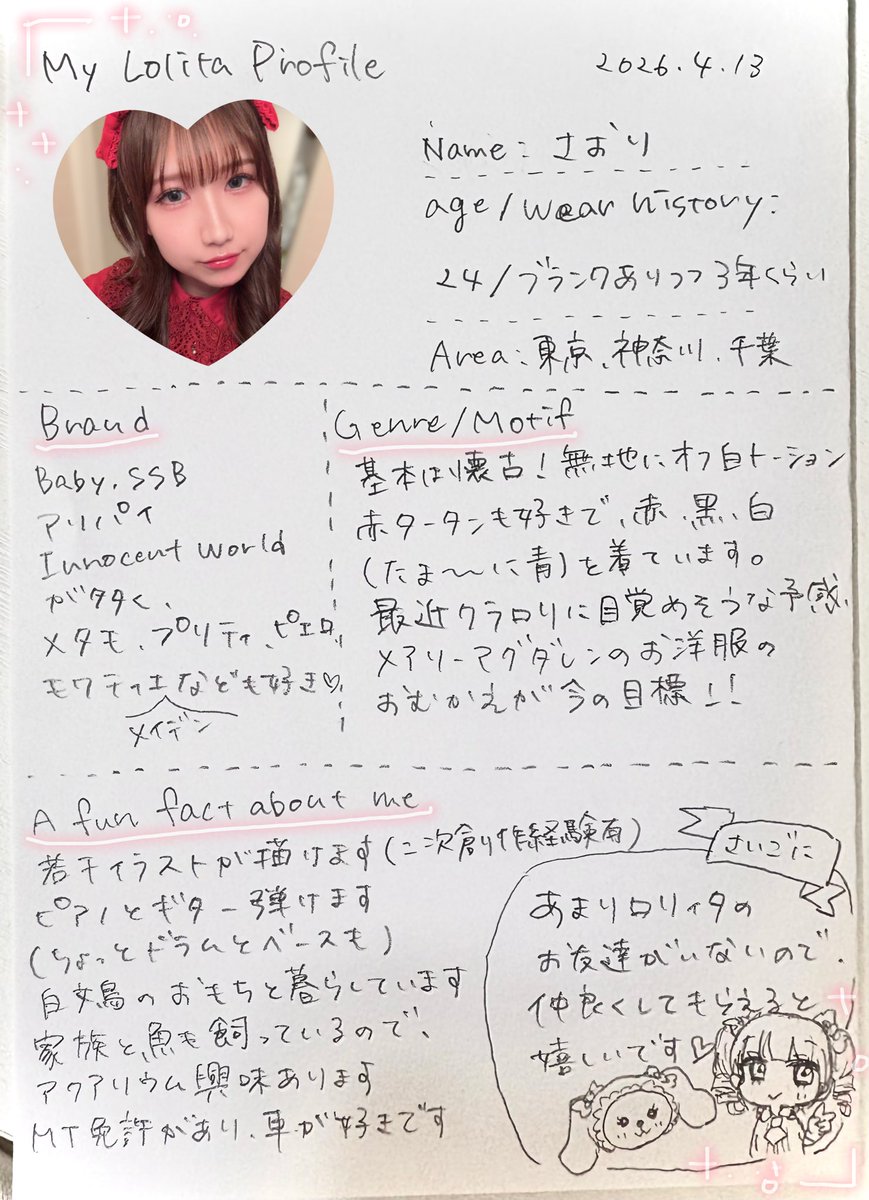 My Lolita Profile
2026.4.13
Name: さおり
age/wear history:
24/ブランクありつつ3年くらい
Area:東京、神奈川、千葉
Brand
Baby,SSB
アリパイ
Innocent world
が多く、
メタモ、プリティ、ピエロ、
モワティエなども好き♡
メイデン
Genre/Motif
基本は懐古!無地にオフ白トーション
赤タータンも好きで、赤、黒、白
(たま〜に青)を着ています。
最近クラロリに目覚めそうな予感、
メアリーマグダレンのお洋服の
おむかえが今の目標!!
A fun fact about me
若干イラストが描けます(二次創作経験有)
ピアノとギター弾けます
(ちょっとドラムとベースも)
白文鳥のおもちと暮らしています
家族と、魚も飼っているので、
アクアリウム興味あります
MT免許があり、車が好きです
さいごに
あまりロリィタの
お友達がいないので、
仲良くしてもらえると
嬉しいです♡